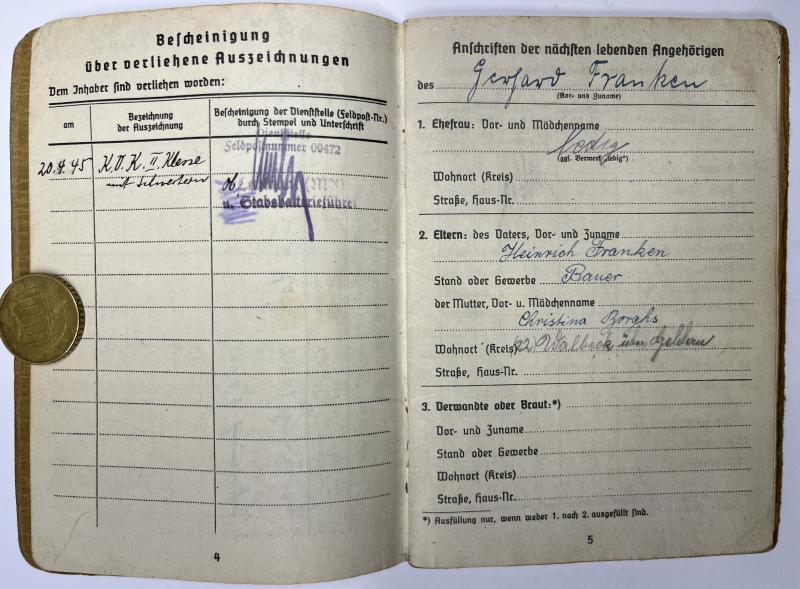 Bescheinigung
über verliehene Auszeichnungen
Dem Inhaber sind verliehen worden:
am
Bezeichnung
der Auszeichnung
Bescheinigung der Dienststelle (Feldpost-Nr.)
durch Stempel und Unterschrift
20.4.45
K.V.K. II. Klasse
mit Schwertern
Dienststelle
Feldpostnummer 00472
u. Stabsbatterieführer
4
Anschriften der nächsten lebenden Angehörigen
des Gerhard Franken
(Vor- und Zuname)
1. Ehefrau: Vor- und Mädchenname
ledig
(ggf. Vermerk „ledig“)
Wohnort (Kreis)
Straße, Haus-Nr.
2. Eltern: des Vaters, Vor- und Zuname
Heinrich Franken
Stand oder Gewerbe Bauer
der Mutter, Vor- u. Mädchenname
Christina Borghs
Wohnort (Kreis) 22 Walbeck über Geldern
Straße, Haus-Nr.
3. Verwandte oder Braut:*)
Vor- und Zuname
Stand oder Gewerbe
Wohnort (Kreis)
Straße, Haus-Nr.
*) Ausfüllung nur, wenn weder 1. noch 2. ausgefüllt sind.
5